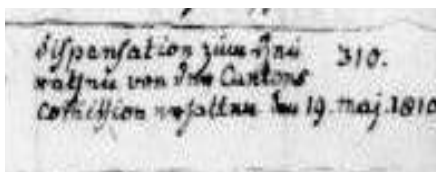 dispensation zum Heu 310.
rathen von der Cantons
Comission erhalten den 19. Maj. 1810